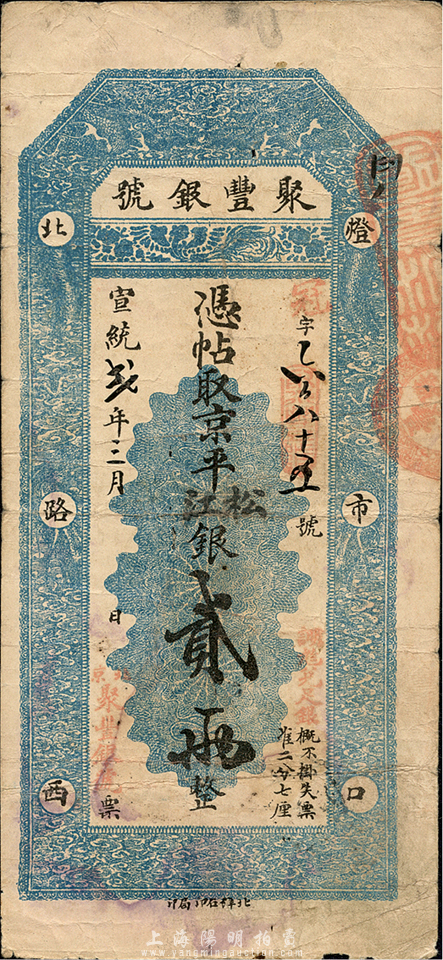 聚豐銀號
燈市口
北路西
冠字
號
憑帖取京平松江銀貳兩整
概不掛失票
准二分七厘
宣統貳年二月
日
票
北京
聚豐銀號
上海陽明拍賣
www.yangmingauction.com